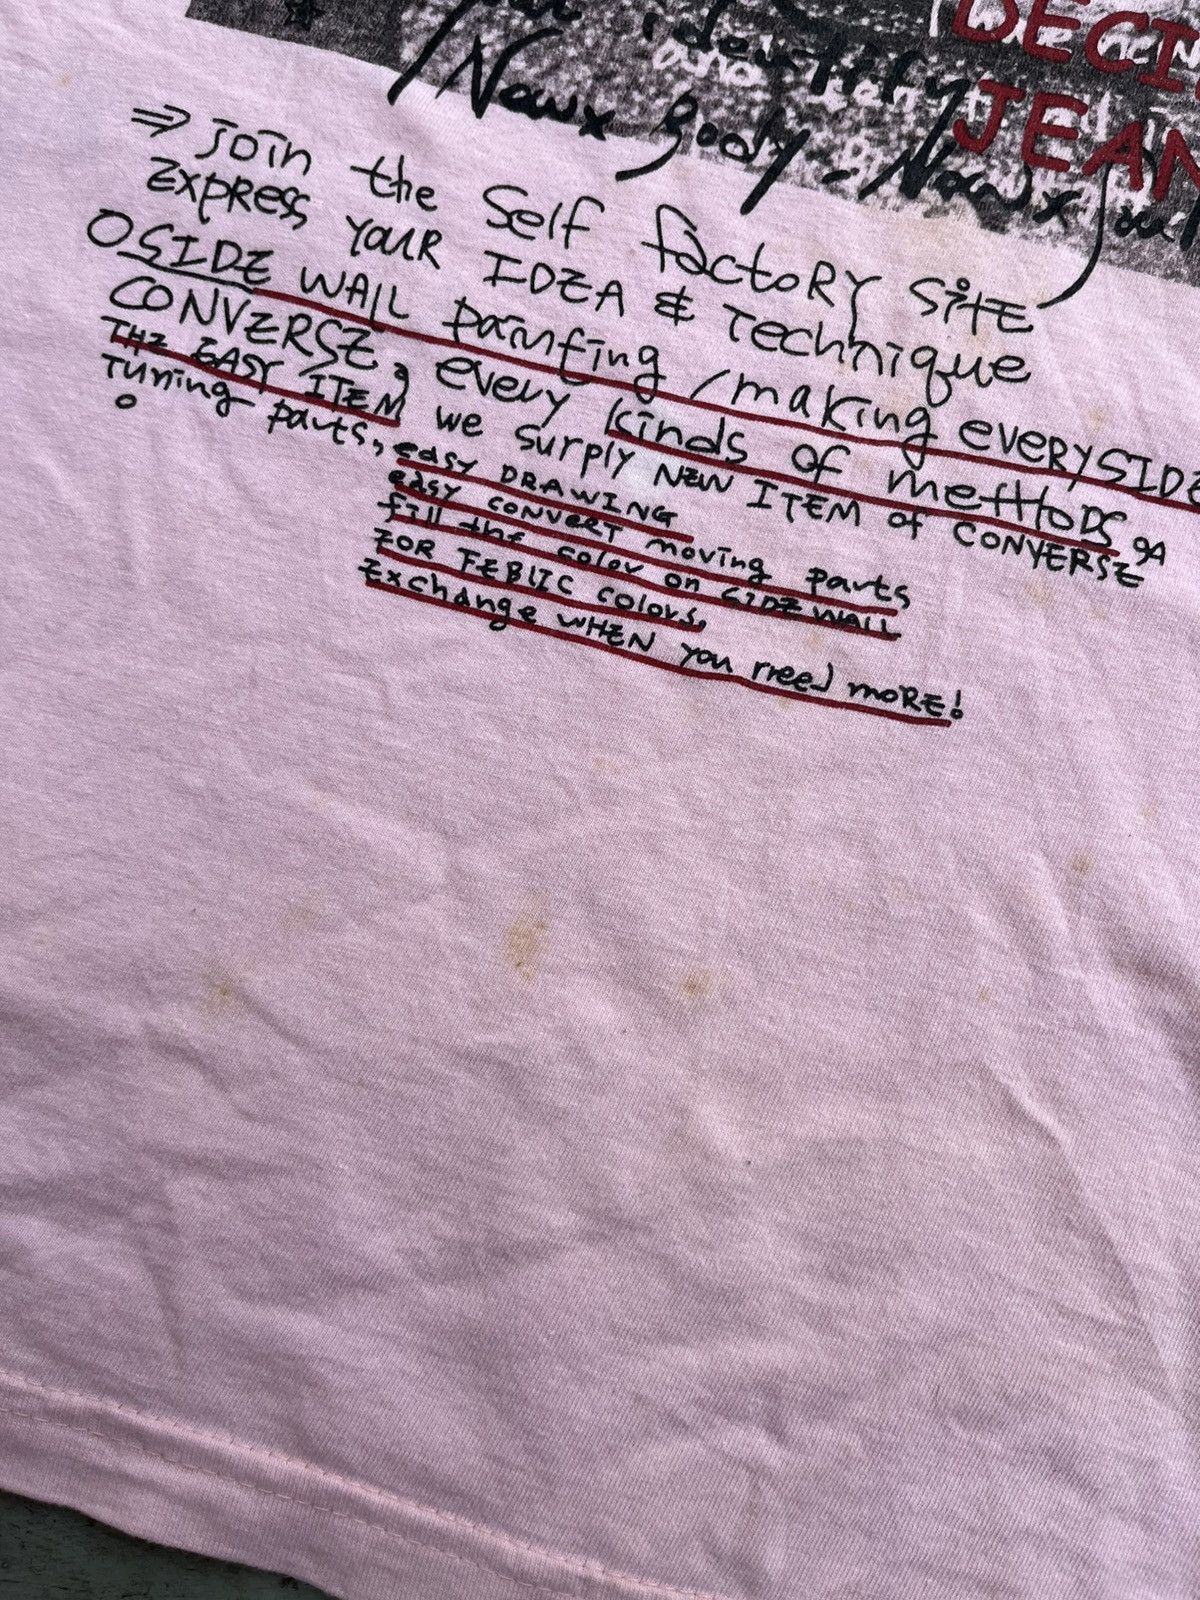 DECI
identify
and
JEAN
Nowx
⇒ join the Self factoRY SitE
EXPRESS YOUR IDEA & Technique
OSIDE WAll painting / making EVERYSIDE
CONVERSE, every kinds of mettHODS
THE EASY ITEM we surply NEW ITEM of CONVERSE
Tuning parts, easy DRAWING
easy CONVERT moving parts
fill the color on SIDE WALL
FOR FEBLIC colors,
Exchange WHEN you need moRE!